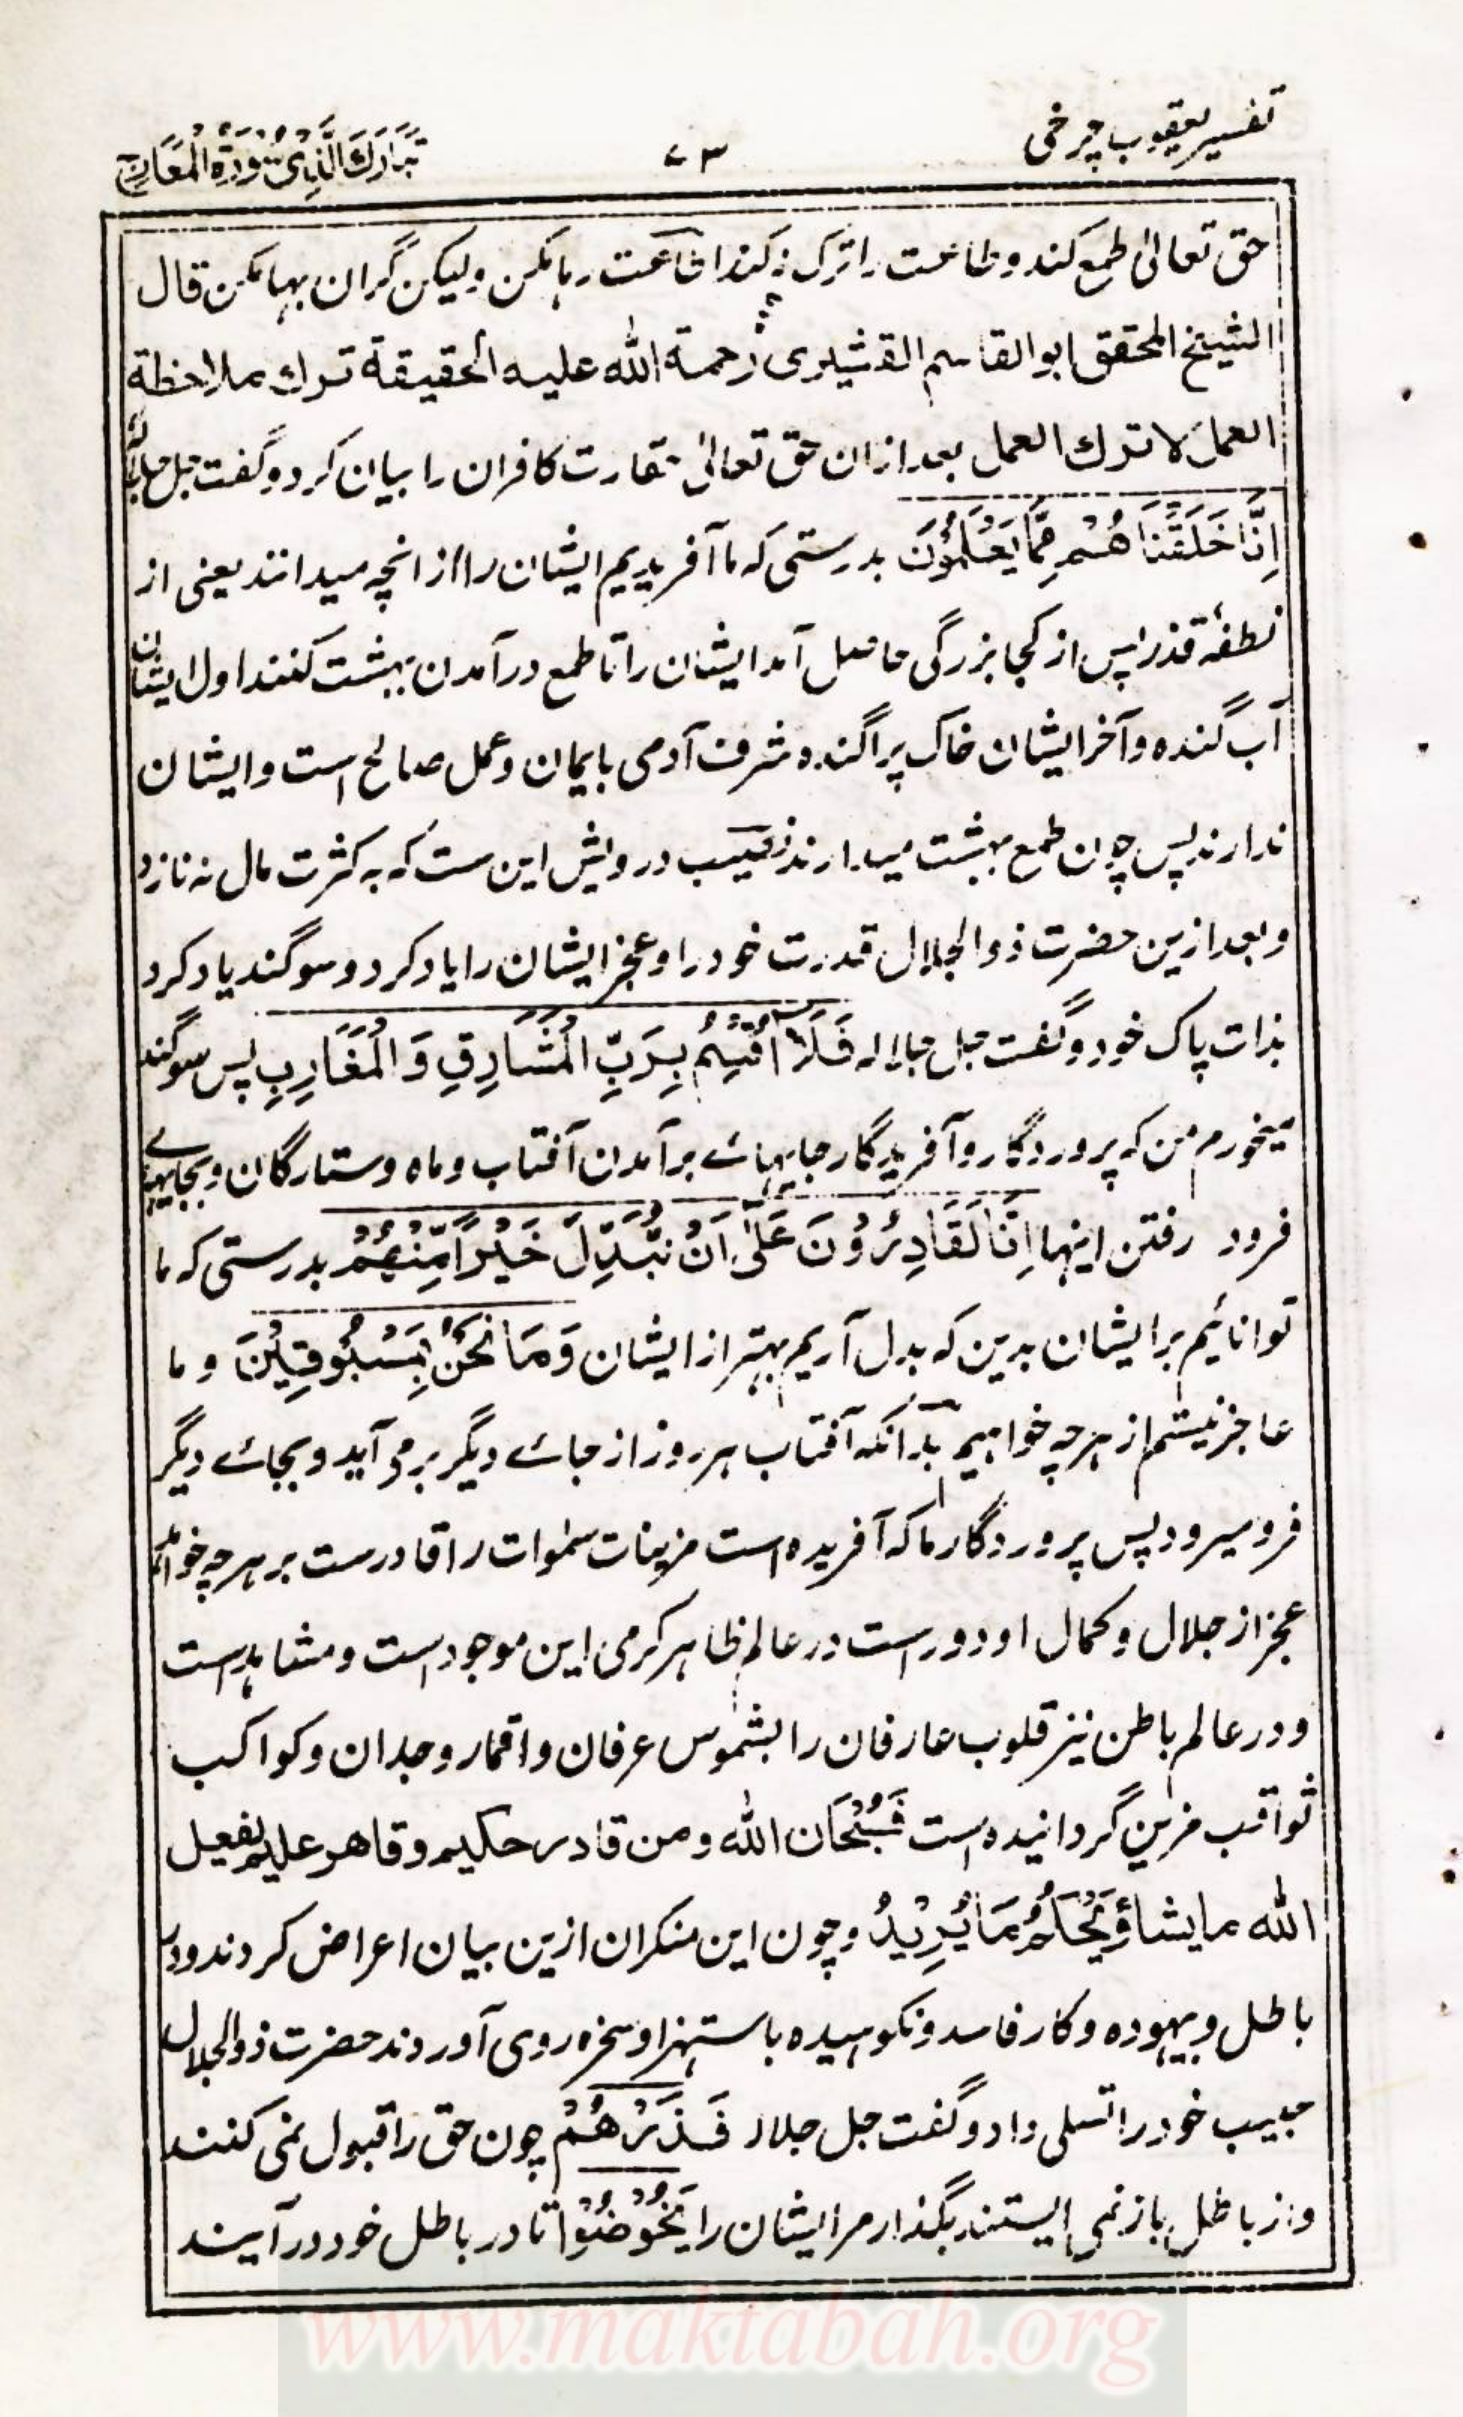 تفسیر یعقوب چرخی
۷۳
تبارك الذی سورة المعارج
حق تعالیٰ طمع کند و طاعت را ترک نکند اطاعت رہا مکن ولیکن گران بہا مکن قال
الشیخ المحقق ابو القاسم القشیری رحمة الله علیه الحقیقة ترك ملاحظة
العمل لا ترك العمل بعد ازان حق تعالیٰ حقارت کافران را بیان کرد و گفت جل جلاله
اِنَّا خَلَقْنَا هُمْ مِمَّا يَعْلَمُوْنَ بدرستی که ما آفریدیم ایشان را از انچه میدانند یعنی از
نطفهٔ قذر پس از کجا بزرگی حاصل آمد ایشان را تا طمع در آمدن بهشت کنند اول ایشان
آب گنده و آخر ایشان خاک پراگنده شرف آدمی بایمان و عمل صالح است و ایشان
ندارند پس چون طمع بهشت میدارند نصیب درویش این ست که به کثرت مال نه نازد
و بعد ازین حضرت ذو الجلال قدرت خود را و عجز ایشان را یاد کرد و سوگند یاد کرد
بذات پاک خود و گفت جل جلاله فَلَاۤ اُقْسِمُ بِرَبِّ الْمَشَارِقِ وَ الْمَغَارِبِ پس سوگند
میخورم من که پروردگار و آفریدگار جایهائے برآمدن آفتاب و ماه و ستارگان و بجایهائے
فرود رفتن اینها اِنَّا لَقَادِرُوْنَ عَلٰۤی اَنْ نُّبَدِّلَ خَيْراً مِّنْهُمْ بدرستی که ما
توانائیم بر ایشان بدین که بدل آریم بهتر از ایشان وَمَا نَحْنُ بِمَسْبُوْقِيْنَ و ما
عاجز نیستم از هرچه خواهیم بدانکه آفتاب هر روز از جائے دیگر برمی آید و بجائے دیگر
فرو میرود پس پروردگار ما که آفریده است مزینات سمٰوات را قادرست بر هرچه خواهد
عجز از جلال و کمال او دورست در عالم ظاهر کرمی این موجودست و مشاهدست
و در عالم باطن نیز قلوب عارفان را بشموس عرفان و اقمار وجدان و کواکب
ثواقب مزین گردانیده است فَسُبْحَان الله و من قادر حکیم و قاهر علیم یفعل
الله ما یشاء وَيَحْكُمُ مَا يُرِيْدُ و چون این منکران ازین بیان اعراض کردند و در
باطل و بیهوده و کار فاسد و نکوهیده باستهزا و سخره روی آوردند حضرت ذو الجلال
حبیب خود را تسلی داد و گفت جل جلاله فَذَرْهُمْ چون حق را قبول نمی کنند
و از باطل باز نمی ایستند بگذار مر ایشان را يَخُوْضُوْا تا در باطل خود در آیند
www.maktabah.org